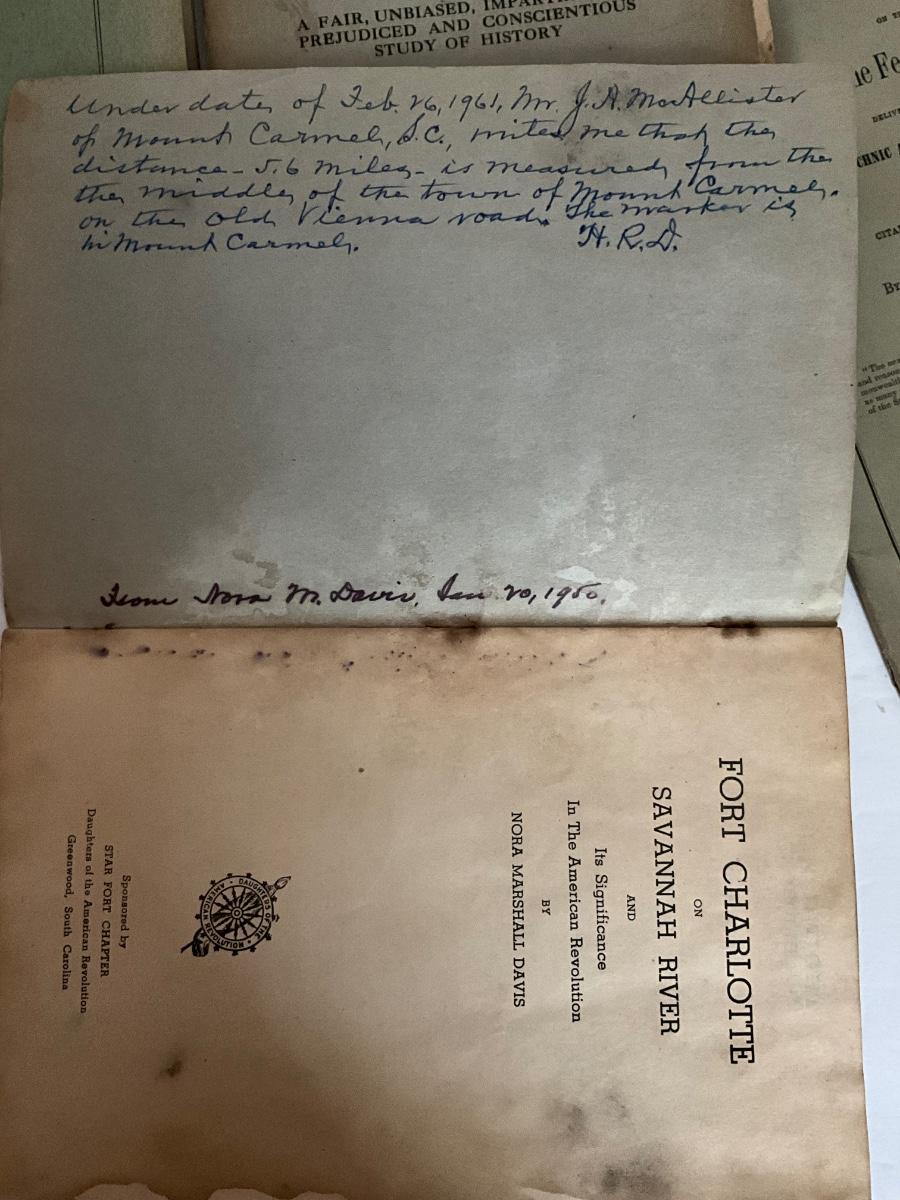 A FAIR, UNBIASED,
PREJUDICED AND CONSCIENTIOUS
STUDY OF HISTORY
Under date of Feb. 26, 1961, Mr. J. A. McAllister
of Mount Carmel, S.C., writes me that the
distance - 5.6 miles - is measured from the
the middle of the town of Mount Carmel.
on the Old Vienna road. The marker is
in Mount Carmel.
H. R. D.
From Nora M. Davis, Jan 20, 1950.
FORT CHARLOTTE
ON
SAVANNAH RIVER
AND
Its Significance
In The American Revolution
BY
NORA MARSHALL DAVIS
DAUGHTERS OF THE AMERICAN REVOLUTION
Sponsored by
STAR FORT CHAPTER
Daughters of the American Revolution
Greenwood, South Carolina
"The
and
as many
of the